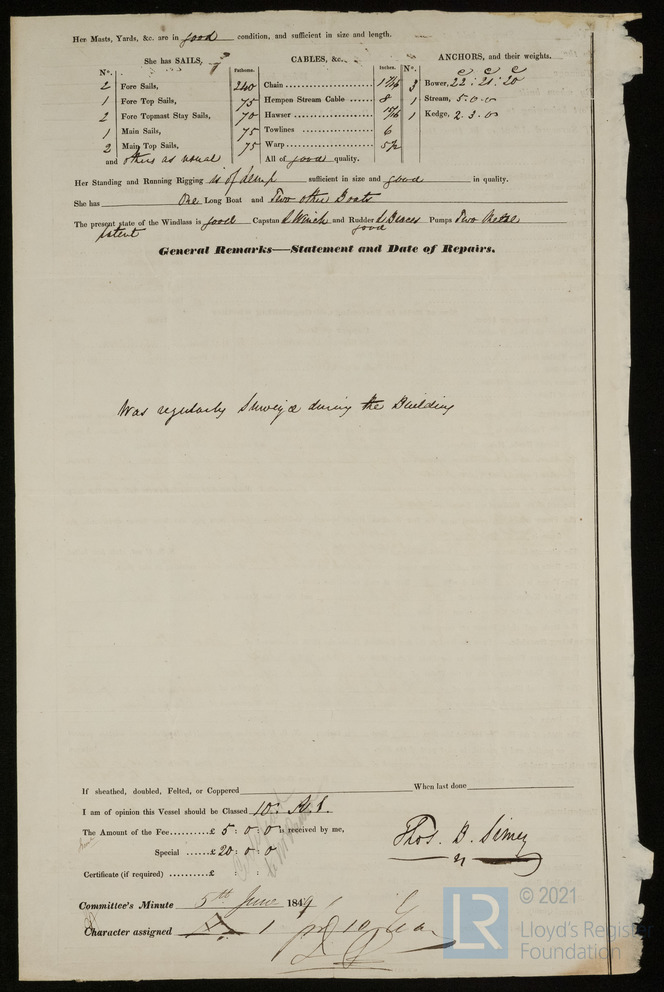 Her Masts, Yards, &c. are in good condition, and sufficient in size and length.
She has SAILS, CABLES, &c. ANCHORS, and their weights.
N°. Fathoms. Inches. N°.
2 Fore Sails, 240 Chain 1 7/16 3 Bower, 22 : 21 : 20
1 Fore Top Sails, 75 Hempen Stream Cable 8 1 Stream, 5 . 0 . 0
2 Fore Topmast Stay Sails, 70 Hawser 1 Kedge, 2 . 3 . 0
1 Main Sails, 75 Towlines 6
2 Main Top Sails, 75 Warp 5½
and others as usual All of good quality.
Her Standing and Running Rigging is of Hemp sufficient in size and good in quality.
She has One Long Boat and Two other Boats
The present state of the Windlass is good Capstan & Winch and Rudder & Braces Pumps Two Metal
patent good
General Remarks—Statement and Date of Repairs.
Was regularly Surveyed during the Building
If sheathed, doubled, Felted, or Coppered When last done
I am of opinion this Vessel should be Classed 10 A.1.
The Amount of the Fee £ 5 : 0 : 0 is received by me,
Special £ 20 : 0 : 0
Thos. B. Simey
Certificate (if required) £ : :
Committee's Minute 5th June 1849
Character assigned A 1
© 2021
LR Lloyd's Register
Foundation